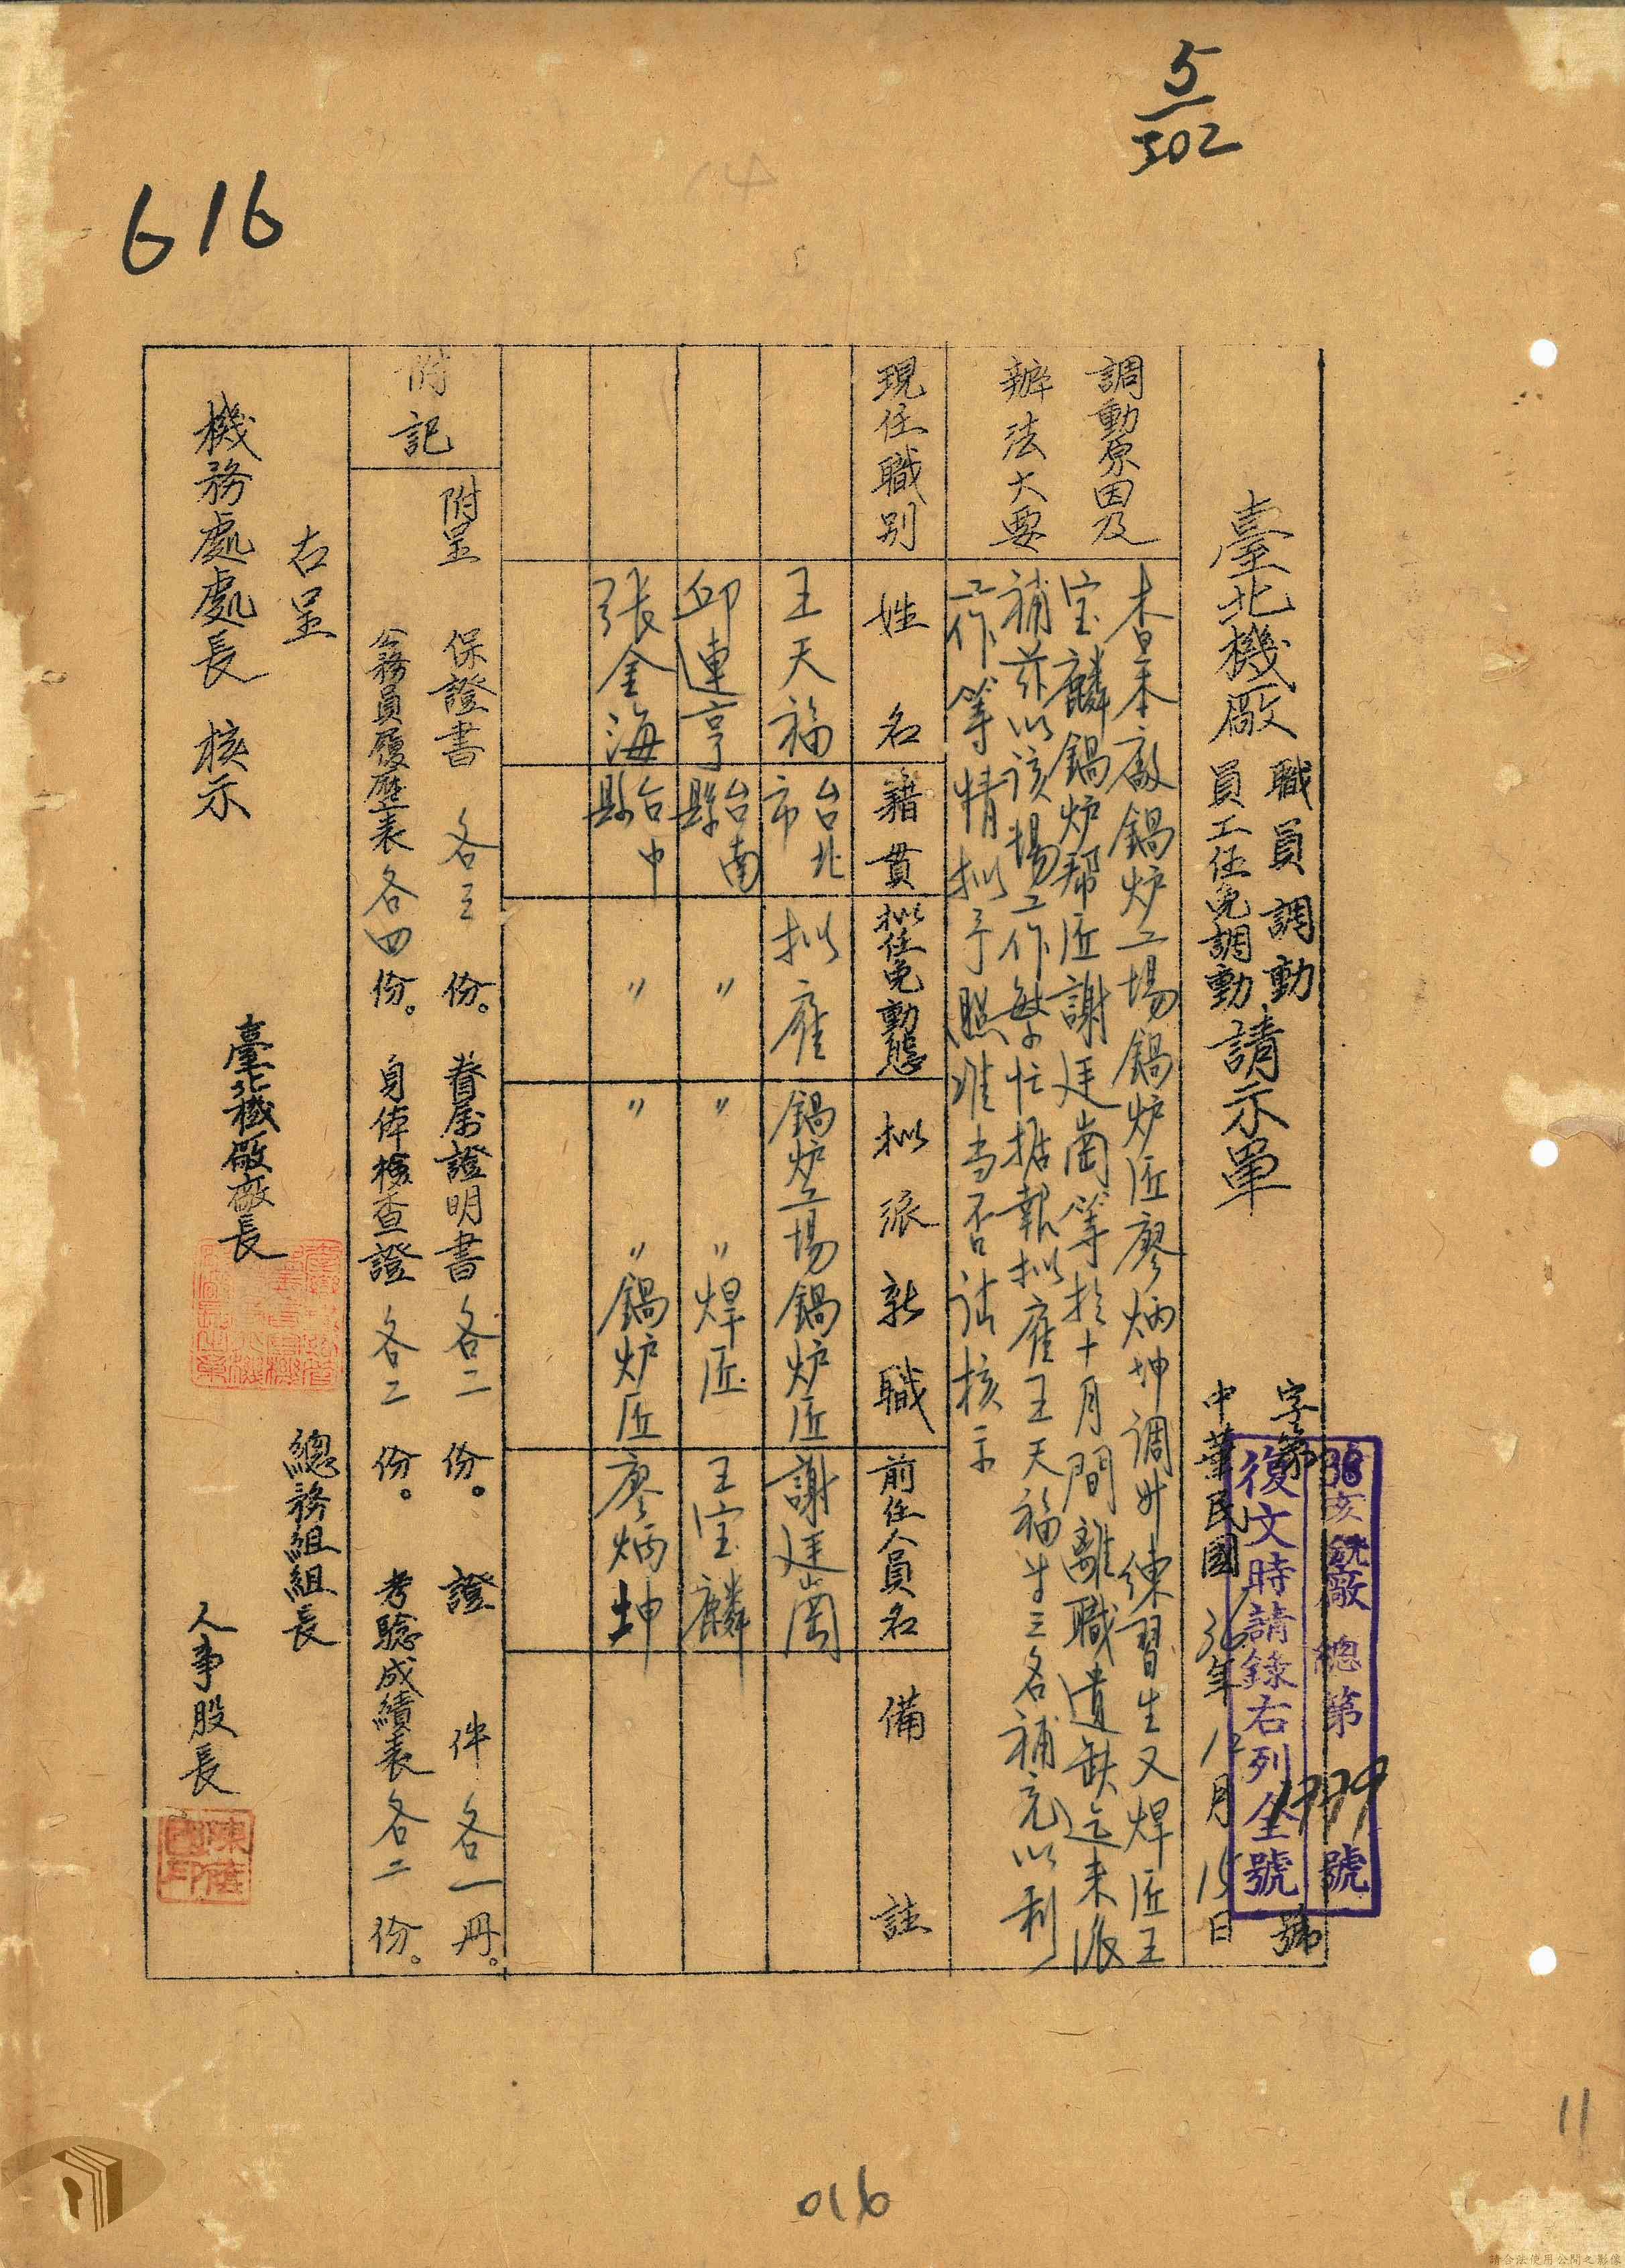 5
302
616
臺北機廠
職員調動
員工任免調動
請示單
字第 號
中華民國36年12月15日
36亥銑廠總第1779號
復文時請錄右列全號
調動原因及
辦法大要
查本廠鍋炉工場鍋炉匠廖炳坤調升練習生又焊匠王
宝麟鍋炉帮匠謝廷崗等於十月間離職遺缺迄未派
補茲以該場工作繁忙据報拟雇王天福等三名補充以利
工作等情拟予照准当否请核示
現任職別
姓名
籍貫
拟任免動態
拟派新職
前任人員名
備註
王天福
台北市
拟雇
鍋炉工場鍋炉匠
謝廷崗
邱連亨
台南縣
〃
〃 〃焊匠
王宝麟
張金海
台中縣
〃
〃 〃鍋炉匠
廖炳坤
附記
附呈 保證書 各三份。眷屬證明書各二份。證件各一冊。
公務員履歷表各四份。身体檢查證各二份。考驗成績表各二份。
右呈
機務處處長 核示
臺北機廠廠長
總務組組長
人事股長
11
016
請合法使用公開之影像